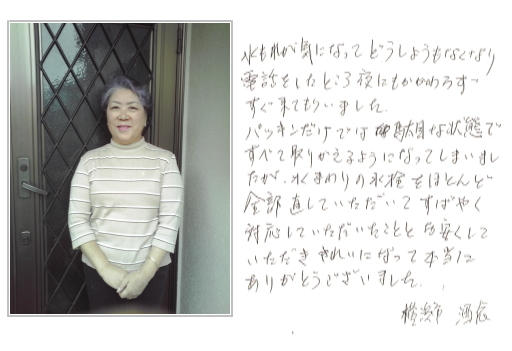 水もれが気になって どうしようもなくなり
電話をしたところ夜にもかかわらず
すぐ来てもらいました.
パッキンだけでは 駄目な状態で
すべて取りかえるようになってしまいまし
たが、水まわりの水栓をほとんど
全部直していただいて すばやく
対応していただいたことと お安くして
いただき きれいになって本当に
ありがとうございました.
横浜市